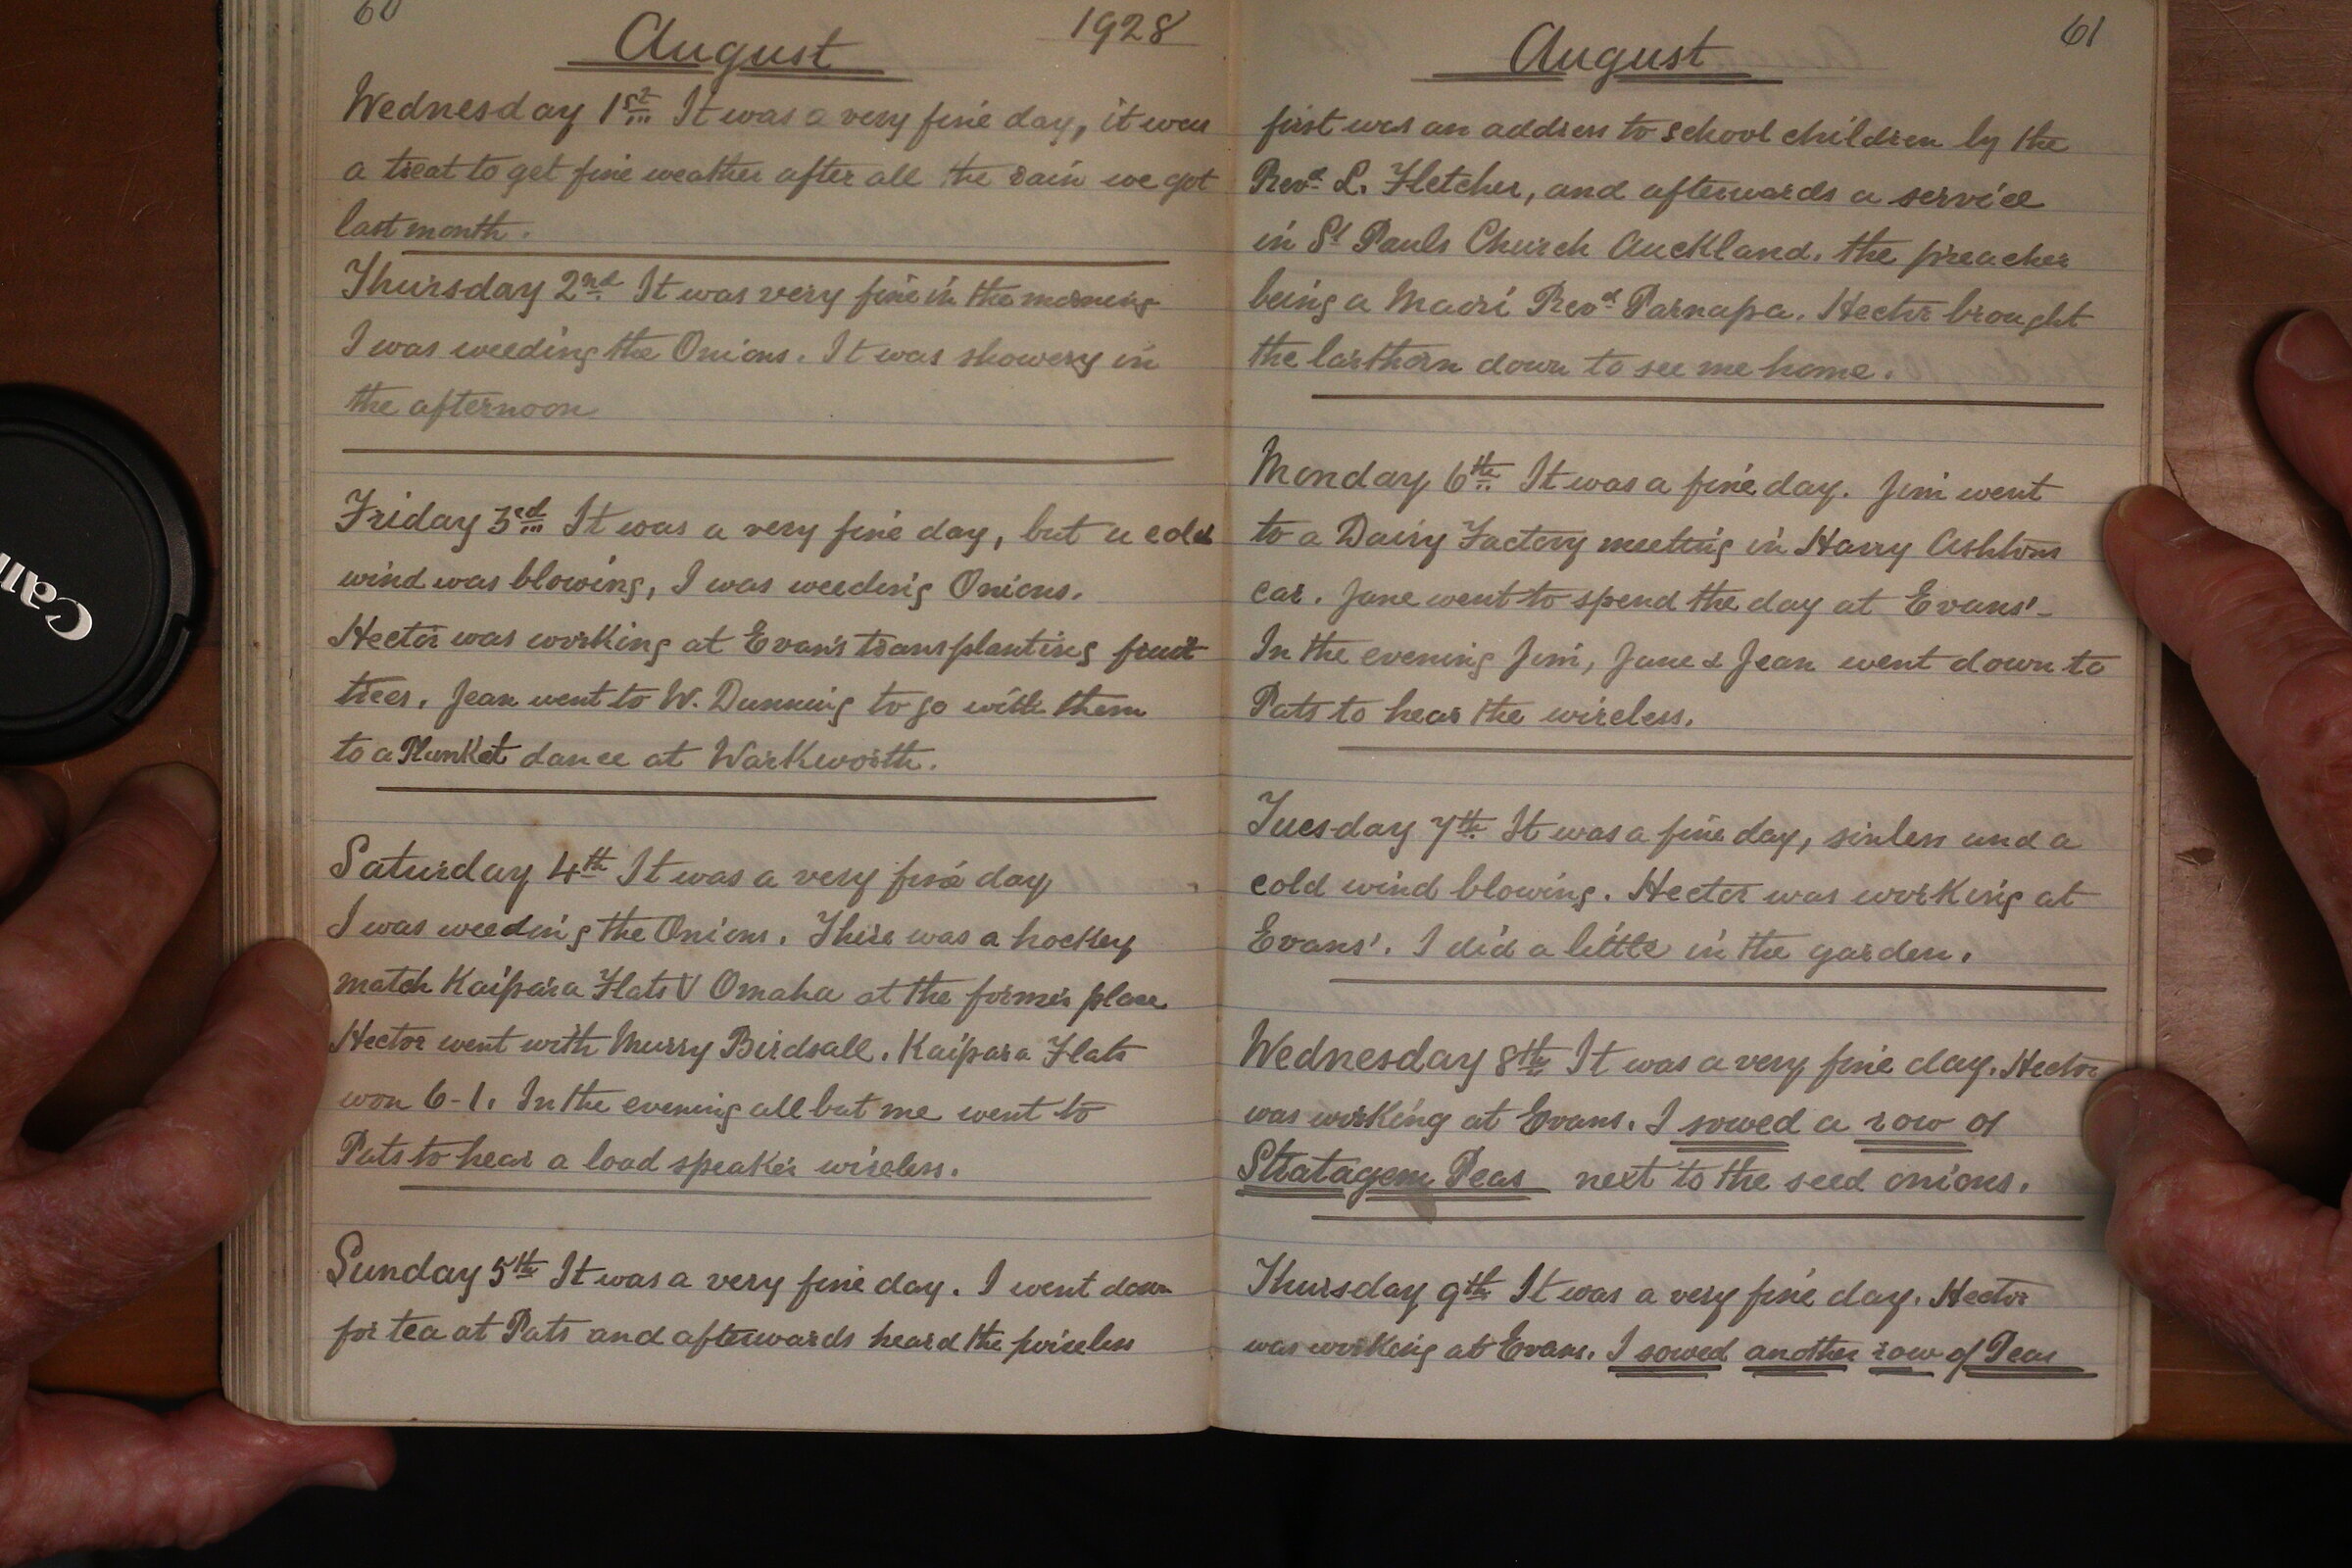 60
August 1928
Wednesday 1st It was a very fine day, it was
a treat to get fine weather after all the rain we got
last month.
Thursday 2nd It was very fine in the morning
I was weeding the Onions. It was showery in
the afternoon
Friday 3rd It was a very fine day, but a cold
wind was blowing, I was weeding Onions.
Hector was working at Evan's transplanting fruit
trees. Jean went to W. Dunning to go with them
to a Plunket dance at Warkworth.
Saturday 4th It was a very fine day
I was weeding the Onions. There was a hockey
match Kaipara Flats V Omaha at the former place
Hector went with Murry Birdsall. Kaipara Flats
won 6-1. In the evening all but me went to
Pats to hear a load speaker wireless.
Sunday 5th It was a very fine day. I went down
for tea at Pats and afterwards heard the wireless
August 61
first was an address to school children by the
Revd. L. Fletcher, and afterwards a service
in St Pauls Church Auckland. the preacher
being a Maori Revd. Parnapa. Hector brought
the lanthorn down to see me home.
Monday 6th It was a fine day. Jim went
to a Dairy Factory meeting in Harry Ashtons
car. Jane went to spend the day at Evans'-
In the evening Jim, Jane & Jean went down to
Pats to hear the wireless.
Tuesday 7th It was a fine day, sinless and a
cold wind blowing. Hector was working at
Evans'. I did a little in the garden.
Wednesday 8th It was a very fine day. Hector
was working at Evans. I sowed a row of
Stratagem Peas next to the seed onions.
Thursday 9th It was a very fine day. Hector
was working at Evans. I sowed another row of Peas
Can